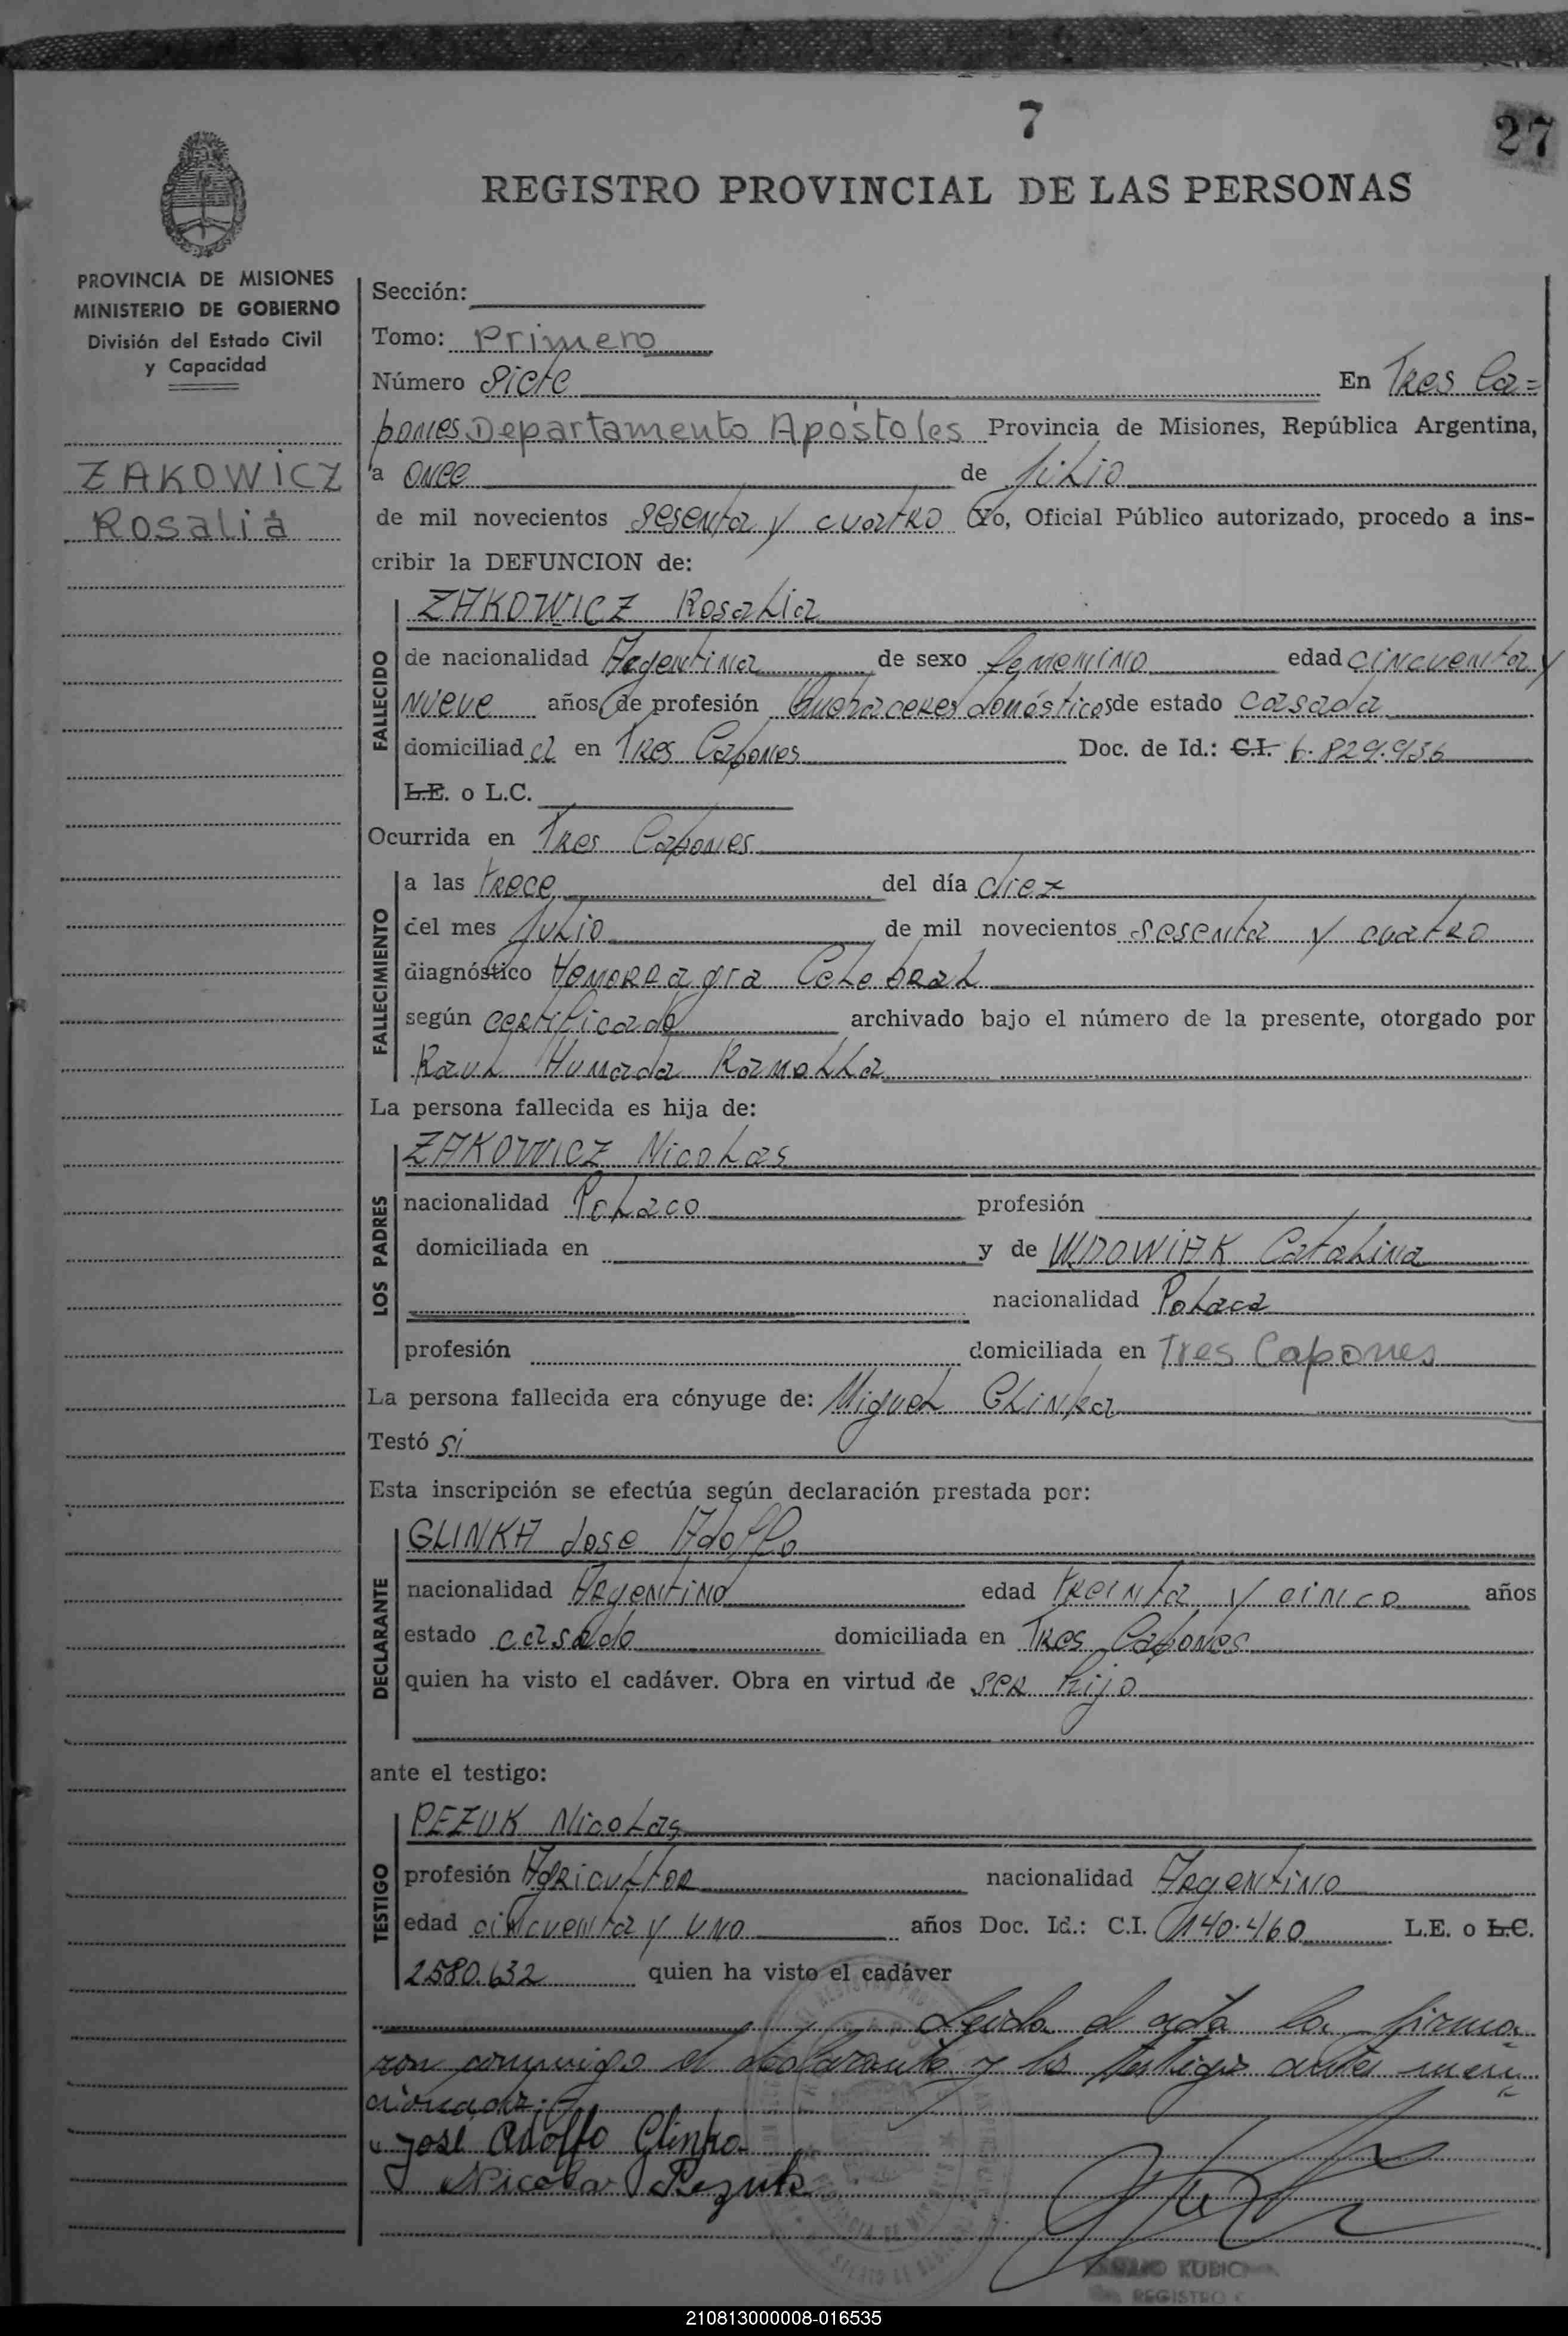 7
27
REGISTRO PROVINCIAL DE LAS PERSONAS
PROVINCIA DE MISIONES
MINISTERIO DE GOBIERNO
División del Estado Civil
y Capacidad
ZAKOWICZ
Rosalia
Sección:
Tomo: Primero
Número Siete En Tres Ca=
pones Departamento Apóstoles Provincia de Misiones, República Argentina,
a once de julio
de mil novecientos sesenta y cuatro Yo, Oficial Público autorizado, procedo a ins-
cribir la DEFUNCION de:
FALLECIDO
ZAKOWICZ Rosalia
de nacionalidad Argentina de sexo femenino edad cincuenta y
nueve años de profesión Quehaceres domésticos de estado casada
domiciliad a en Tres Capones Doc. de Id.: C.I. 6.829.956
L.E. o L.C.
Ocurrida en Tres Capones
FALLECIMIENTO
a las trece del día diez
del mes julio de mil novecientos sesenta y cuatro
diagnóstico Hemorragia Celebral
según certificado archivado bajo el número de la presente, otorgado por
Raul Humada Ramella
La persona fallecida es hija de:
LOS PADRES
ZAKOWICZ Nicolas
nacionalidad Polaco profesión
domiciliada en y de WDOWIAK Catalina
nacionalidad Polaca
profesión domiciliada en Tres Capones
La persona fallecida era cónyuge de: Miguel Glinka
Testó si
Esta inscripción se efectúa según declaración prestada por:
DECLARANTE
GLINKA Jose Adolfo
nacionalidad Argentino edad treinta y cinco años
estado casado domiciliada en Tres Capones
quien ha visto el cadáver. Obra en virtud de ser hijo
ante el testigo:
TESTIGO
PEZUK Nicolas
profesión Agricultor nacionalidad Argentino
edad cincuenta y uno años Doc. Id.: C.I. 140.460 L.E. o L.C.
2580.632 quien ha visto el cadáver
Leida el acta la firma
ron conmigo el declarante y los testigos antes men
cionados.
Jose Adolfo Glinka
Nicolas Pezuk
KUBIC
REGISTRO
210813000008-016535